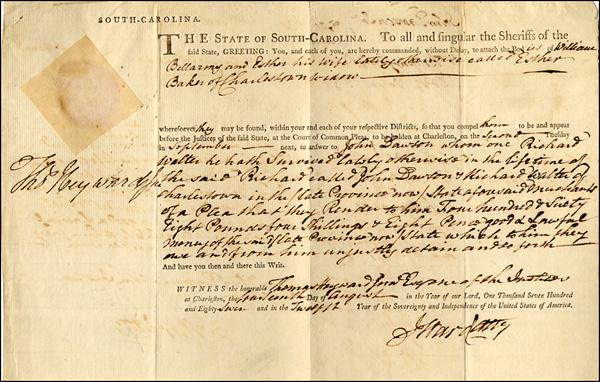 SOUTH-CAROLINA.
THE STATE OF SOUTH-CAROLINA. To all and singular the Sheriffs of the
said State, GREETING: You, and each of you, are hereby commanded, without Delay, to attach the Bodies of William
Bellamy and Esther his Wife lately otherwise called Esther
Baker of Charlestown widow
wheresoever they may be found, within your and each of your respective Districts, so that you compel them to be and appear
before the Justices of the said State, at the Court of Common Pleas, to be holden at Charleston, on the second Tuesday
in September next, to answer to John Dawson whom one Richard
Walter he hath Survived lately otherwise in the lifetime of
the said Richard called John Dawson & Richard Walter of
Charlestown in the (late Province now) State aforesaid Merchants
of a Plea that they Render to him Four hundred & Sixty
Eight Pounds four Shillings & Eight Pence good & Lawful
money of the said (late Province now) State which to him they
owe and from him unjustly detain and so forth
And have you then and there this Writ.
Thos Heyward Junr
WITNESS the honorable Thomas Heyward Junr Esquire of the Justices
at Charleston, the fourteenth Day of August in the Year of our Lord, One Thousand Seven Hundred
and Eighty Seven and in the Twelfth Year of the Sovereignty and Independence of the United States of America.